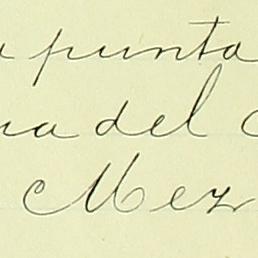 a punta
ua del
Mez